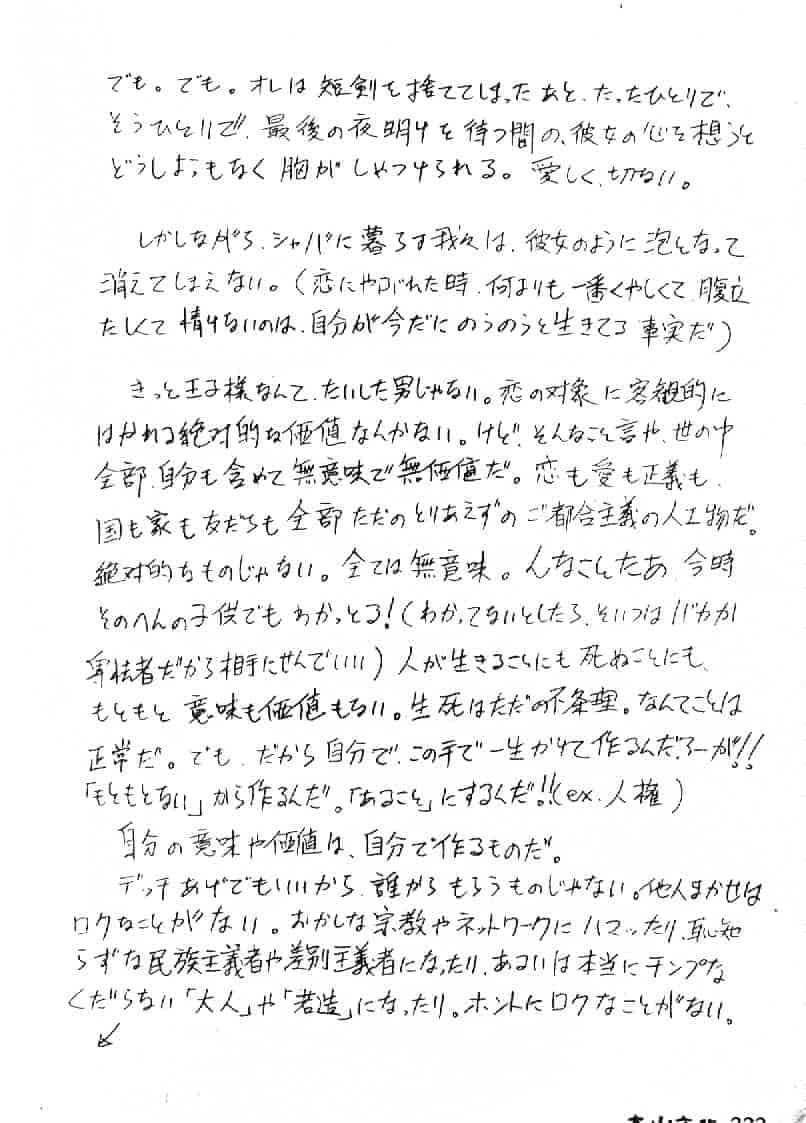 でも。でも。オレは短剣を捨ててしまったあと、たったひとりで、
そうひとりで、最後の夜明けを待つ間の、彼女の心を想うと
どうしようもなく胸がしめつけられる。愛しく、切ない。
しかしながら、シャバに暮らす我々は、彼女のように泡となって
消えてしまえない。(恋にやぶれた時、何よりも一番くやしくて、腹立
たしくて情けないのは、自分が今だにのうのうと生きてる事実だ)
きっと王子様なんて、たいした男じゃない。恋の対象に客観的に
はかれる絶対的な価値なんかない。けど、そんなこと言や、世の中
全部、自分も含めて無意味で無価値だ。恋も愛も正義も、
国も家も友だちも全部ただのとりあえずのご都合主義の人工物だ。
絶対的なものじゃない。全ては無意味。んなこたあ、今時
そのへんの子供でもわかっとる!(わかってないとしたら、そいつはバカか
卑怯者だから相手にせんでいい)人が生きることにも死ぬことにも、
もともと意味も価値もない。生死はただの不条理。なんてことは
正常だ。でも、だから自分で、この手で一生かけて作るんだろーが!!
「もともとない」から作るんだ。「あること」にするんだ!!(ex.人権)
自分の意味や価値は、自分で作るものだ。
デッチあげでもいいから、誰からもらうものじゃない。他人まかせは
ロクなことがない。おかしな宗教やネットワークにハマッたり、恥知
らずな民族主義者や差別主義者になったり、あるいは本当にテンプな
くだらない「大人」や「若造」になったり。ホントにロクなことがない。
↙